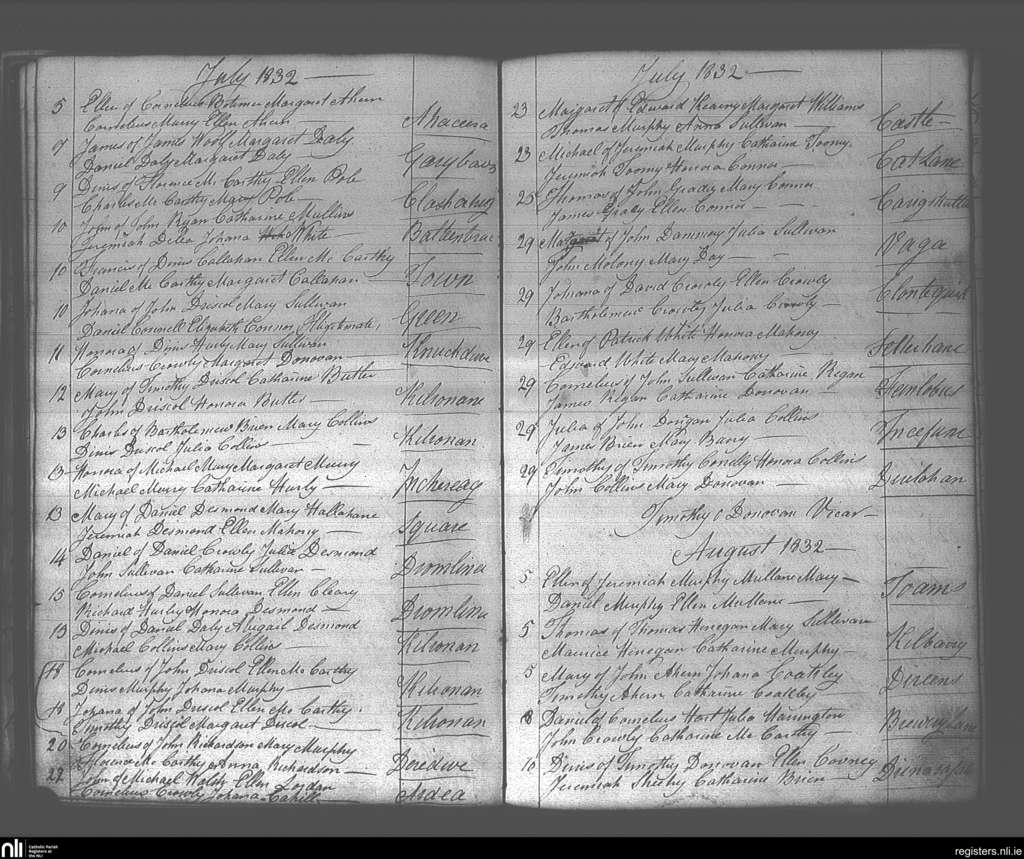 July 1832
5 Ellen of Cornelius Margaret Ahern
Cornelius Murry Ellen Ahern Ahaceera
7 James of James Wool Margaret Daly
Daniel Daly Margaret Daly
9 Denis of Florence Mc Carthy Ellen Pole
Charles Mc Carthy Mary Pole
10 John of John Ryan Catharine Mullins
Jeremiah Delea Johana White
10 Francis of Denis Callahan Ellen Mc Carthy
Daniel Mc Carthy Margaret Callahan Town
10 Johana of John Driscol Mary Sullivan
Daniel Connell Elizabeth Connor Green
11 Honora of Denis Hurly Mary Sullivan
Cornelius Crowly Margaret Donovan
12 Mary of Timothy Driscol Catharine Butler
John Driscol Honora Butler Kilronane
13 Charles of Bartholemew Brien Mary Collins
Denis Driscol Julia Collins Kilronan
13 Honora of Michael Murry Margaret Murry
Michael Murry Catharine Hurly Inchereag
13 Mary of Daniel Desmond Mary Hallahane
Jeremiah Desmond Ellen Mahony Square
14 Daniel of Daniel Crowly Julia Desmond
John Sullivan Catharine Sullivan Dromlina
15 Cornelius of Daniel Sullivan Ellen Cleary
Richard Hurly Honora Desmond Dromlina
13 Denis of Daniel Daly Abigail Desmond
Michael Collins Mary Collins Kilronan
18 Cornelius of John Driscol Ellen Mc Carthy
Denis Murphy Johana Murphy Kilronan
18 Johana of John Driscol Ellen Mc Carthy
Timothy Driscol Margaret Driscol Kilronan
20 Cornelius of John Richardson Mary Murphy
Florence Mc Carthy Anna Richardson
22 John of Michael Walsh Ellen
Cornelius Crowly Johana Cahill Ardea
July 1832
23 Margaret of Edward Kearny Margaret Williams
Thomas Murphy Anna Sullivan Castle
23 Michael of Jeremiah Murphy Catharine Toomy
Jeremiah Toomy Honora Connor Cat Lane
25 Thomas of John Grady Mary Connor
James Grady Ellen Connor
29 Margaret of John Julia Sullivan
John Molony Mary Day
29 Johana of David Crowly Ellen Crowly
Bartholemew Crowly Julia Crowly
29 Ellen of Patrick White Honora Mahony
Edward White Mary Mahony
29 Cornelius of John Sullivan Catharine Regan
James Regan Catharine Donovan
29 Julia of John Donigan Julia Collins
James Brien Mary Barry
29 Timothy of Timothy Honora Collins
John Collins Mary Donovan
Timothy O Donovan Vicar
August 1832
5 Ellen of Jeremiah Murphy Mullane Mary
Daniel Murphy Ellen Mullane Toams
5 Thomas of Thomas Henegan Mary Sullivan
Maurice Henegan Catharine Murphy Kilbarry
5 Mary of John Ahern Johana Coakley
Timothy Ahern Catharine Coakley Direens
8 Daniel of Cornelius Hart Julia Harrington
John Crowly Catharine Mc Carthy Brewery Lane
10 Denis of Timothy Donovan Ellen Covney
Jeremiah Sheehy Catharine Brien
nli Catholic Parish
Registers at
the NLI
registers.nli.ie